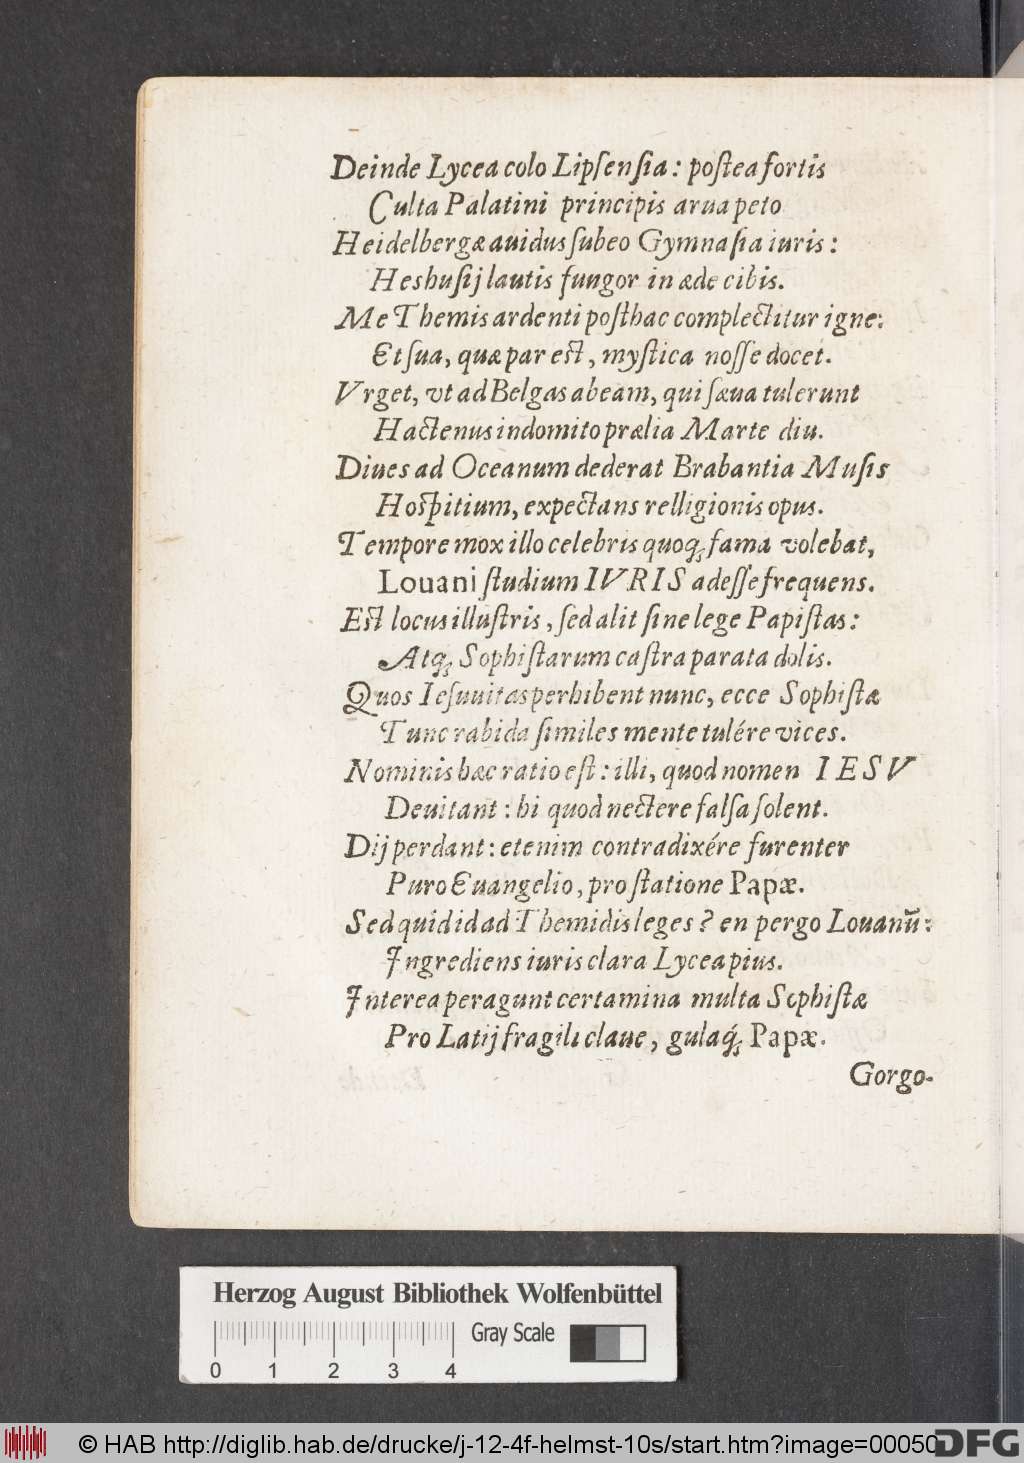 Deinde Lycea colo Lipſenſia: poſtea fortis
Culta Palatini principis arua peto
Heidelbergæ auidus ſubeo Gymnaſia iuris:
Heshuſij lautis fungor in æde cibis.
Me Themis ardenti poſthac complectitur igne:
Et ſua, quæ par eſt, myſtica noſſe docet.
Vrget, vt ad Belgas abeam, qui ſæua tulerunt
Hactenus indomito prælia Marte diu.
Diues ad Oceanum dederat Brabantia Muſis
Hoſpitium, expectans relligionis opus.
Tempore mox illo celebris quoq; fama volebat,
Louani ſtudium IVRIS adeſſe frequens.
Eſt locus illuſtris, ſed alit ſine lege Papiſtas:
Atq; Sophiſtarum caſtra parata dolis.
Quos Ieſuuitas perhibent nunc, ecce Sophiſtæ
Tunc rabida ſimiles mente tulére vices.
Nominis hæc ratio eſt: illi, quod nomen IESV
Deuitant: hi quod nectere falſa ſolent.
Dij perdant: etenim contradixére furenter
Puro Euangelio, pro ſtatione Papæ.
Sed quid id ad Themidis leges? en pergo Louanũ:
Ingrediens iuris clara Lycea pius.
Interea peragunt certamina multa Sophiſtæ
Pro Latij fragili claue, gulaq́; Papæ.
Gorgo-
Herzog August Bibliothek Wolfenbüttel
Gray Scale
0 1 2 3 4
© HAB http://diglib.hab.de/drucke/j-12-4f-helmst-10s/start.htm?image=00050
DFG